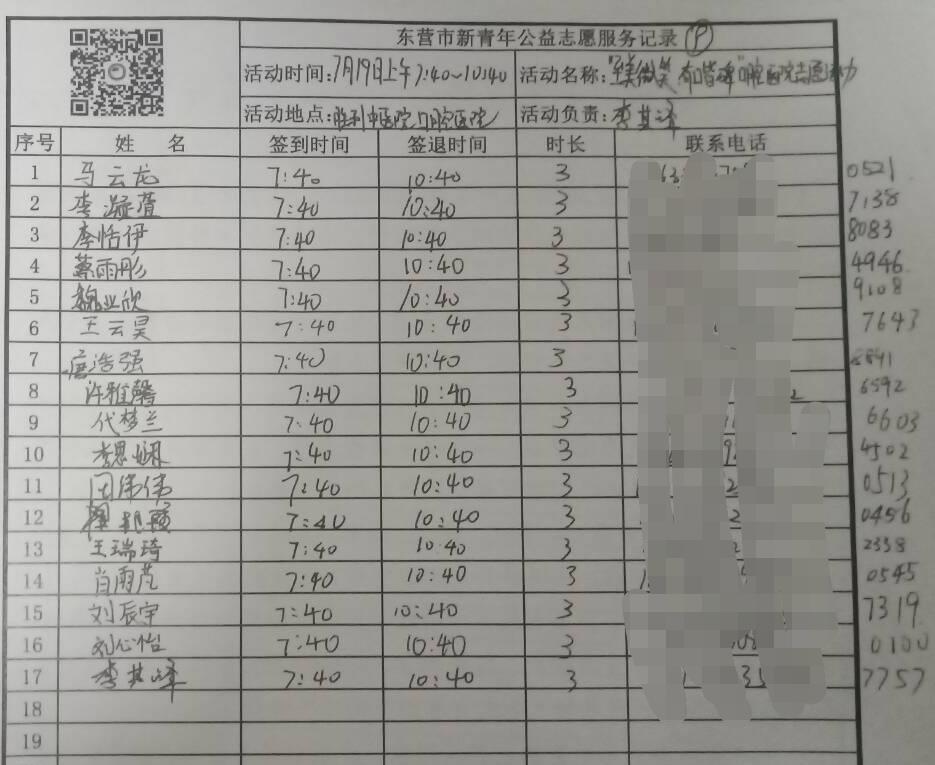 东营市新青年公益志愿服务记录 P
活动时间:7月19日上午7:40~10:40 活动名称:"至美微笑 有"口腔医院志愿活动
活动地点:胜利中医院口腔医院 活动负责:李其峰
序号 姓 名 签到时间 签退时间 时长 联系电话
1 马云龙 7:40 10:40 3 0521
2 李凝萱 7:40 10:40 3 7138
3 李恬伊 7:40 10:40 3 8083
4 蔡雨彤 7:40 10:40 3 4946
5 魏业欣 7:40 10:40 3 9108
6 王云昊 7:40 10:40 3 7643
7 唐浩强 7:40 10:40 3 8841
8 许雅馨 7:40 10:40 3 6592
9 代梦兰 7:40 10:40 3 6603
10 李思娴 7:40 10:40 3 4502
11 闫伟伟 7:40 10:40 3 0513
12 7:40 10:40 3 0456
13 王瑞琦 7:40 10:40 3 2338
14 肖雨芃 7:40 10:40 3 0545
15 刘辰宇 7:40 10:40 3 7319
16 刘心怡 7:40 10:40 3 0100
17 李其峰 7:40 10:40 3 7757
18
19